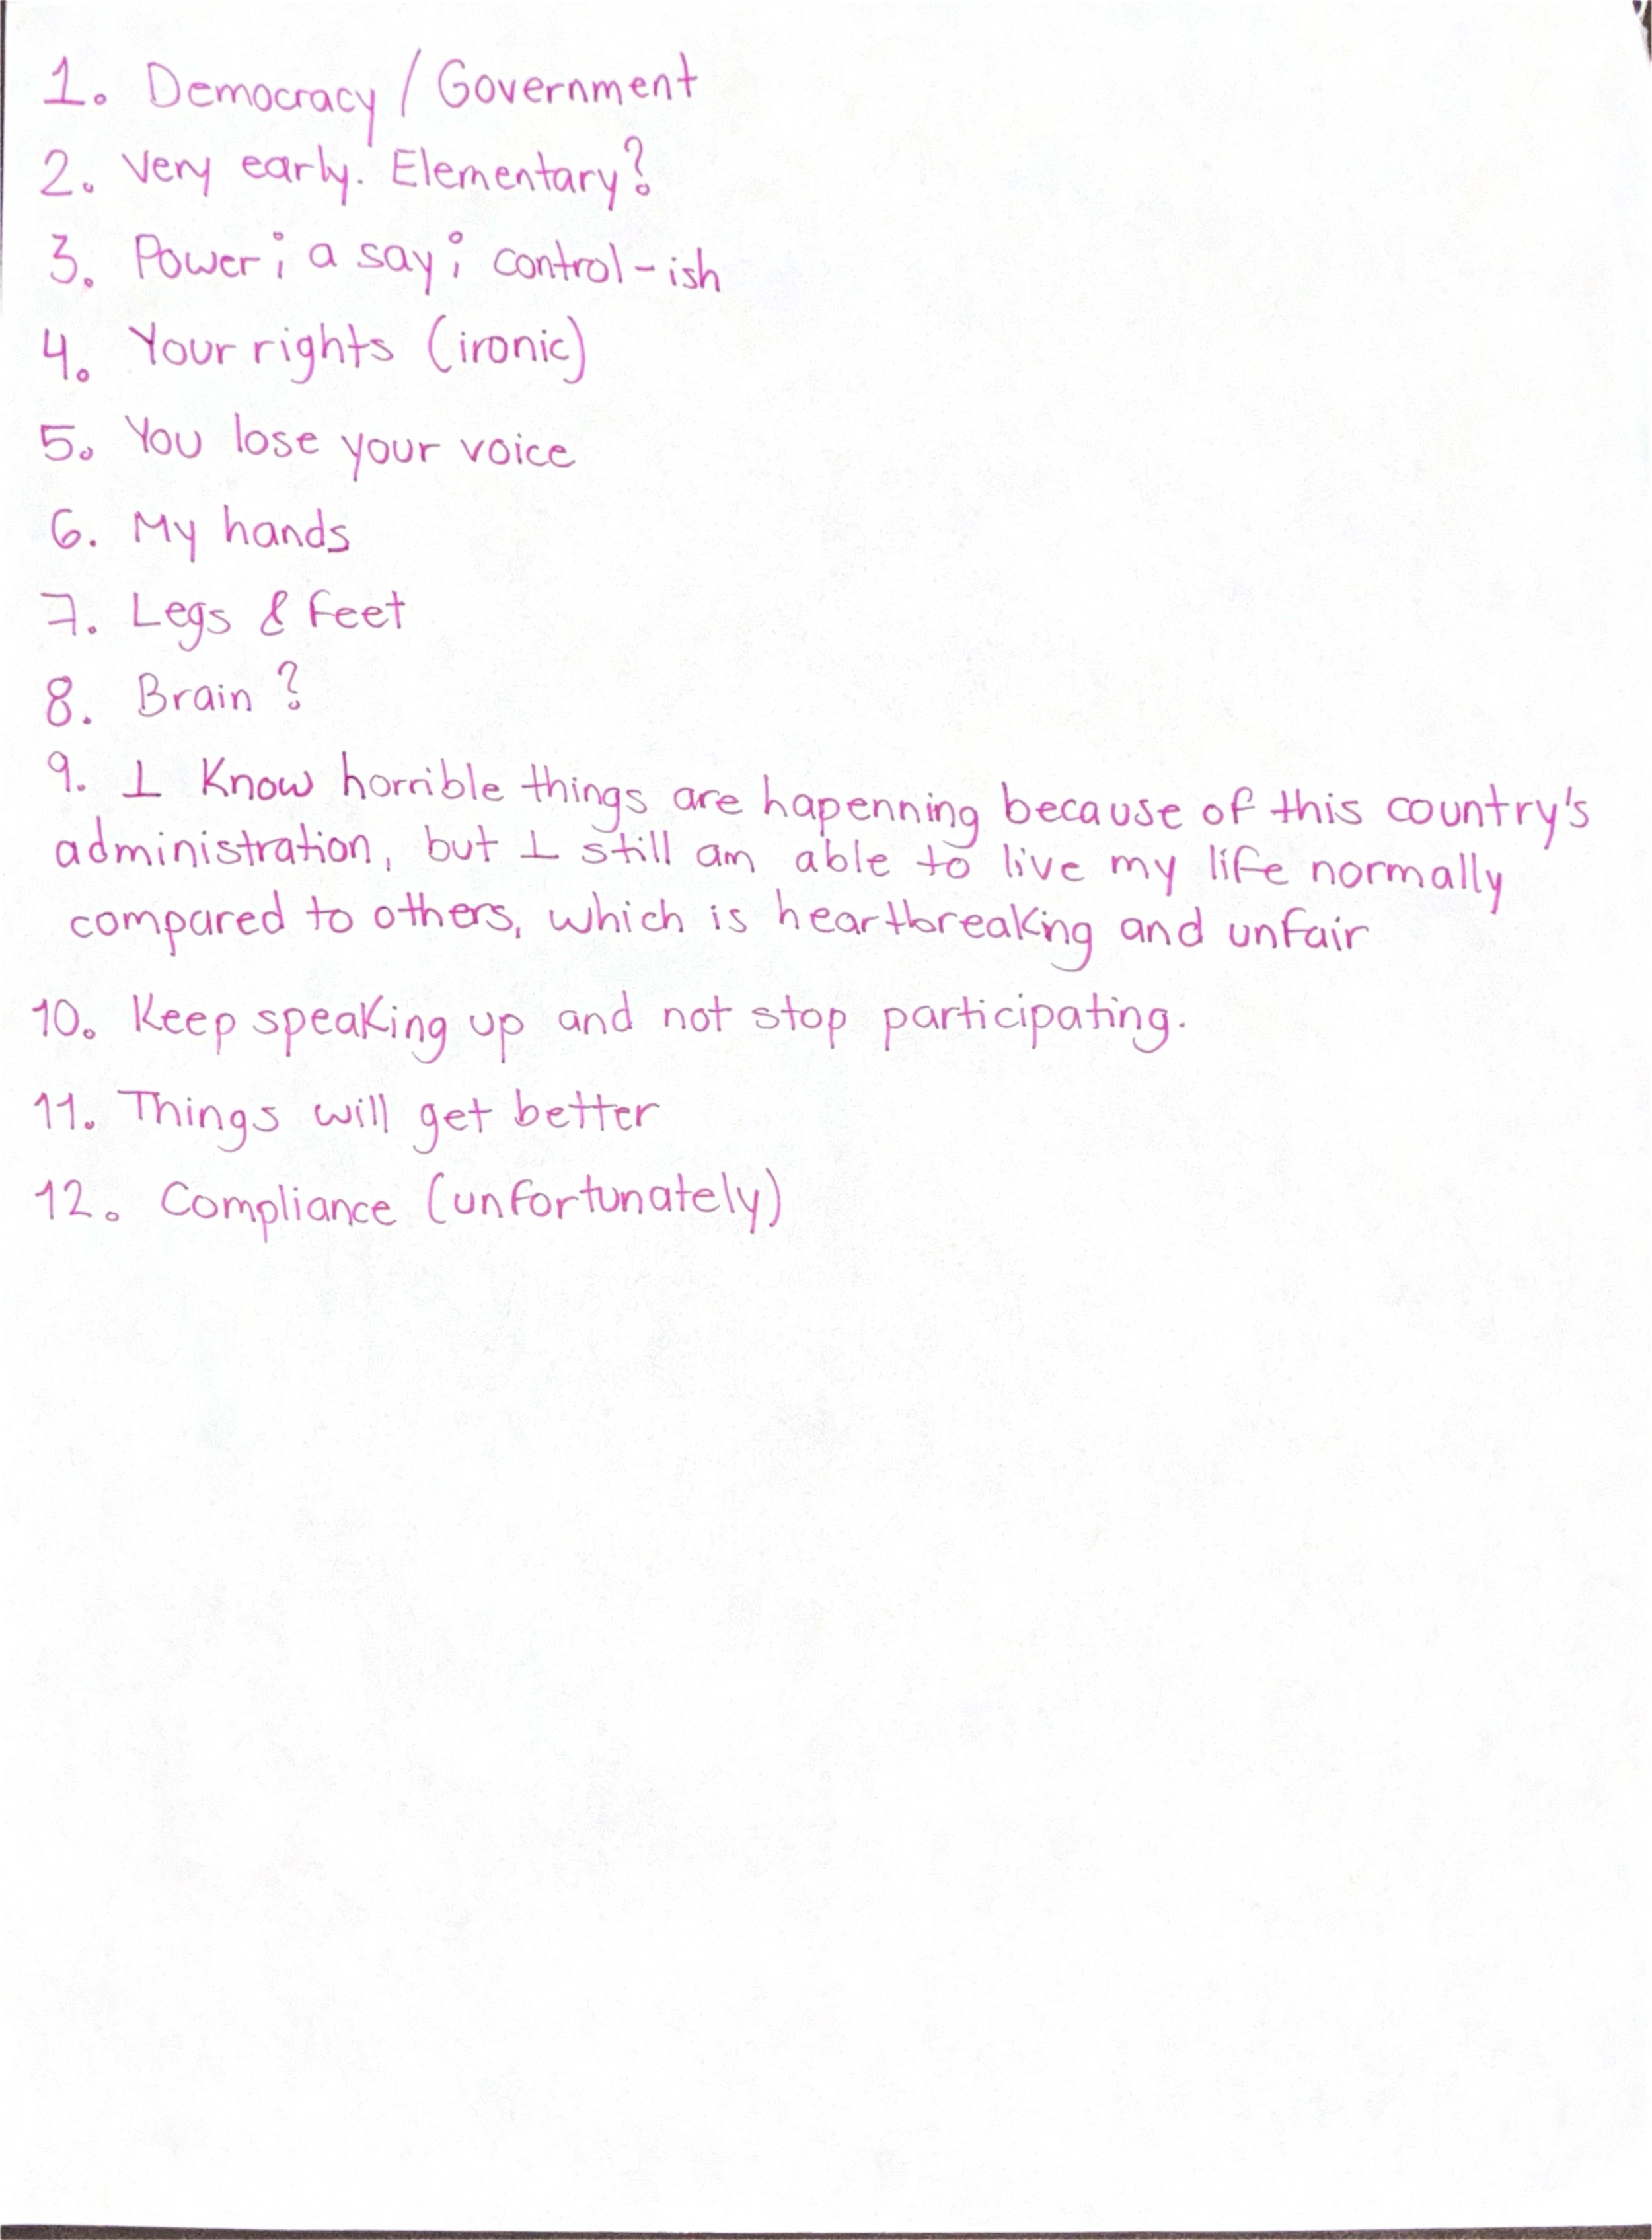 1. Democracy / Government
2. Very early. Elementary?
3. Power; a say; control-ish
4. Your rights (ironic)
5. You lose your voice
6. My hands
7. Legs & feet
8. Brain?
9. I know horrible things are hapenning because of this country's
administration, but I still am able to live my life normally
compared to others, which is heartbreaking and unfair
10. Keep speaking up and not stop participating.
11. Things will get better
12. Compliance (unfortunately)